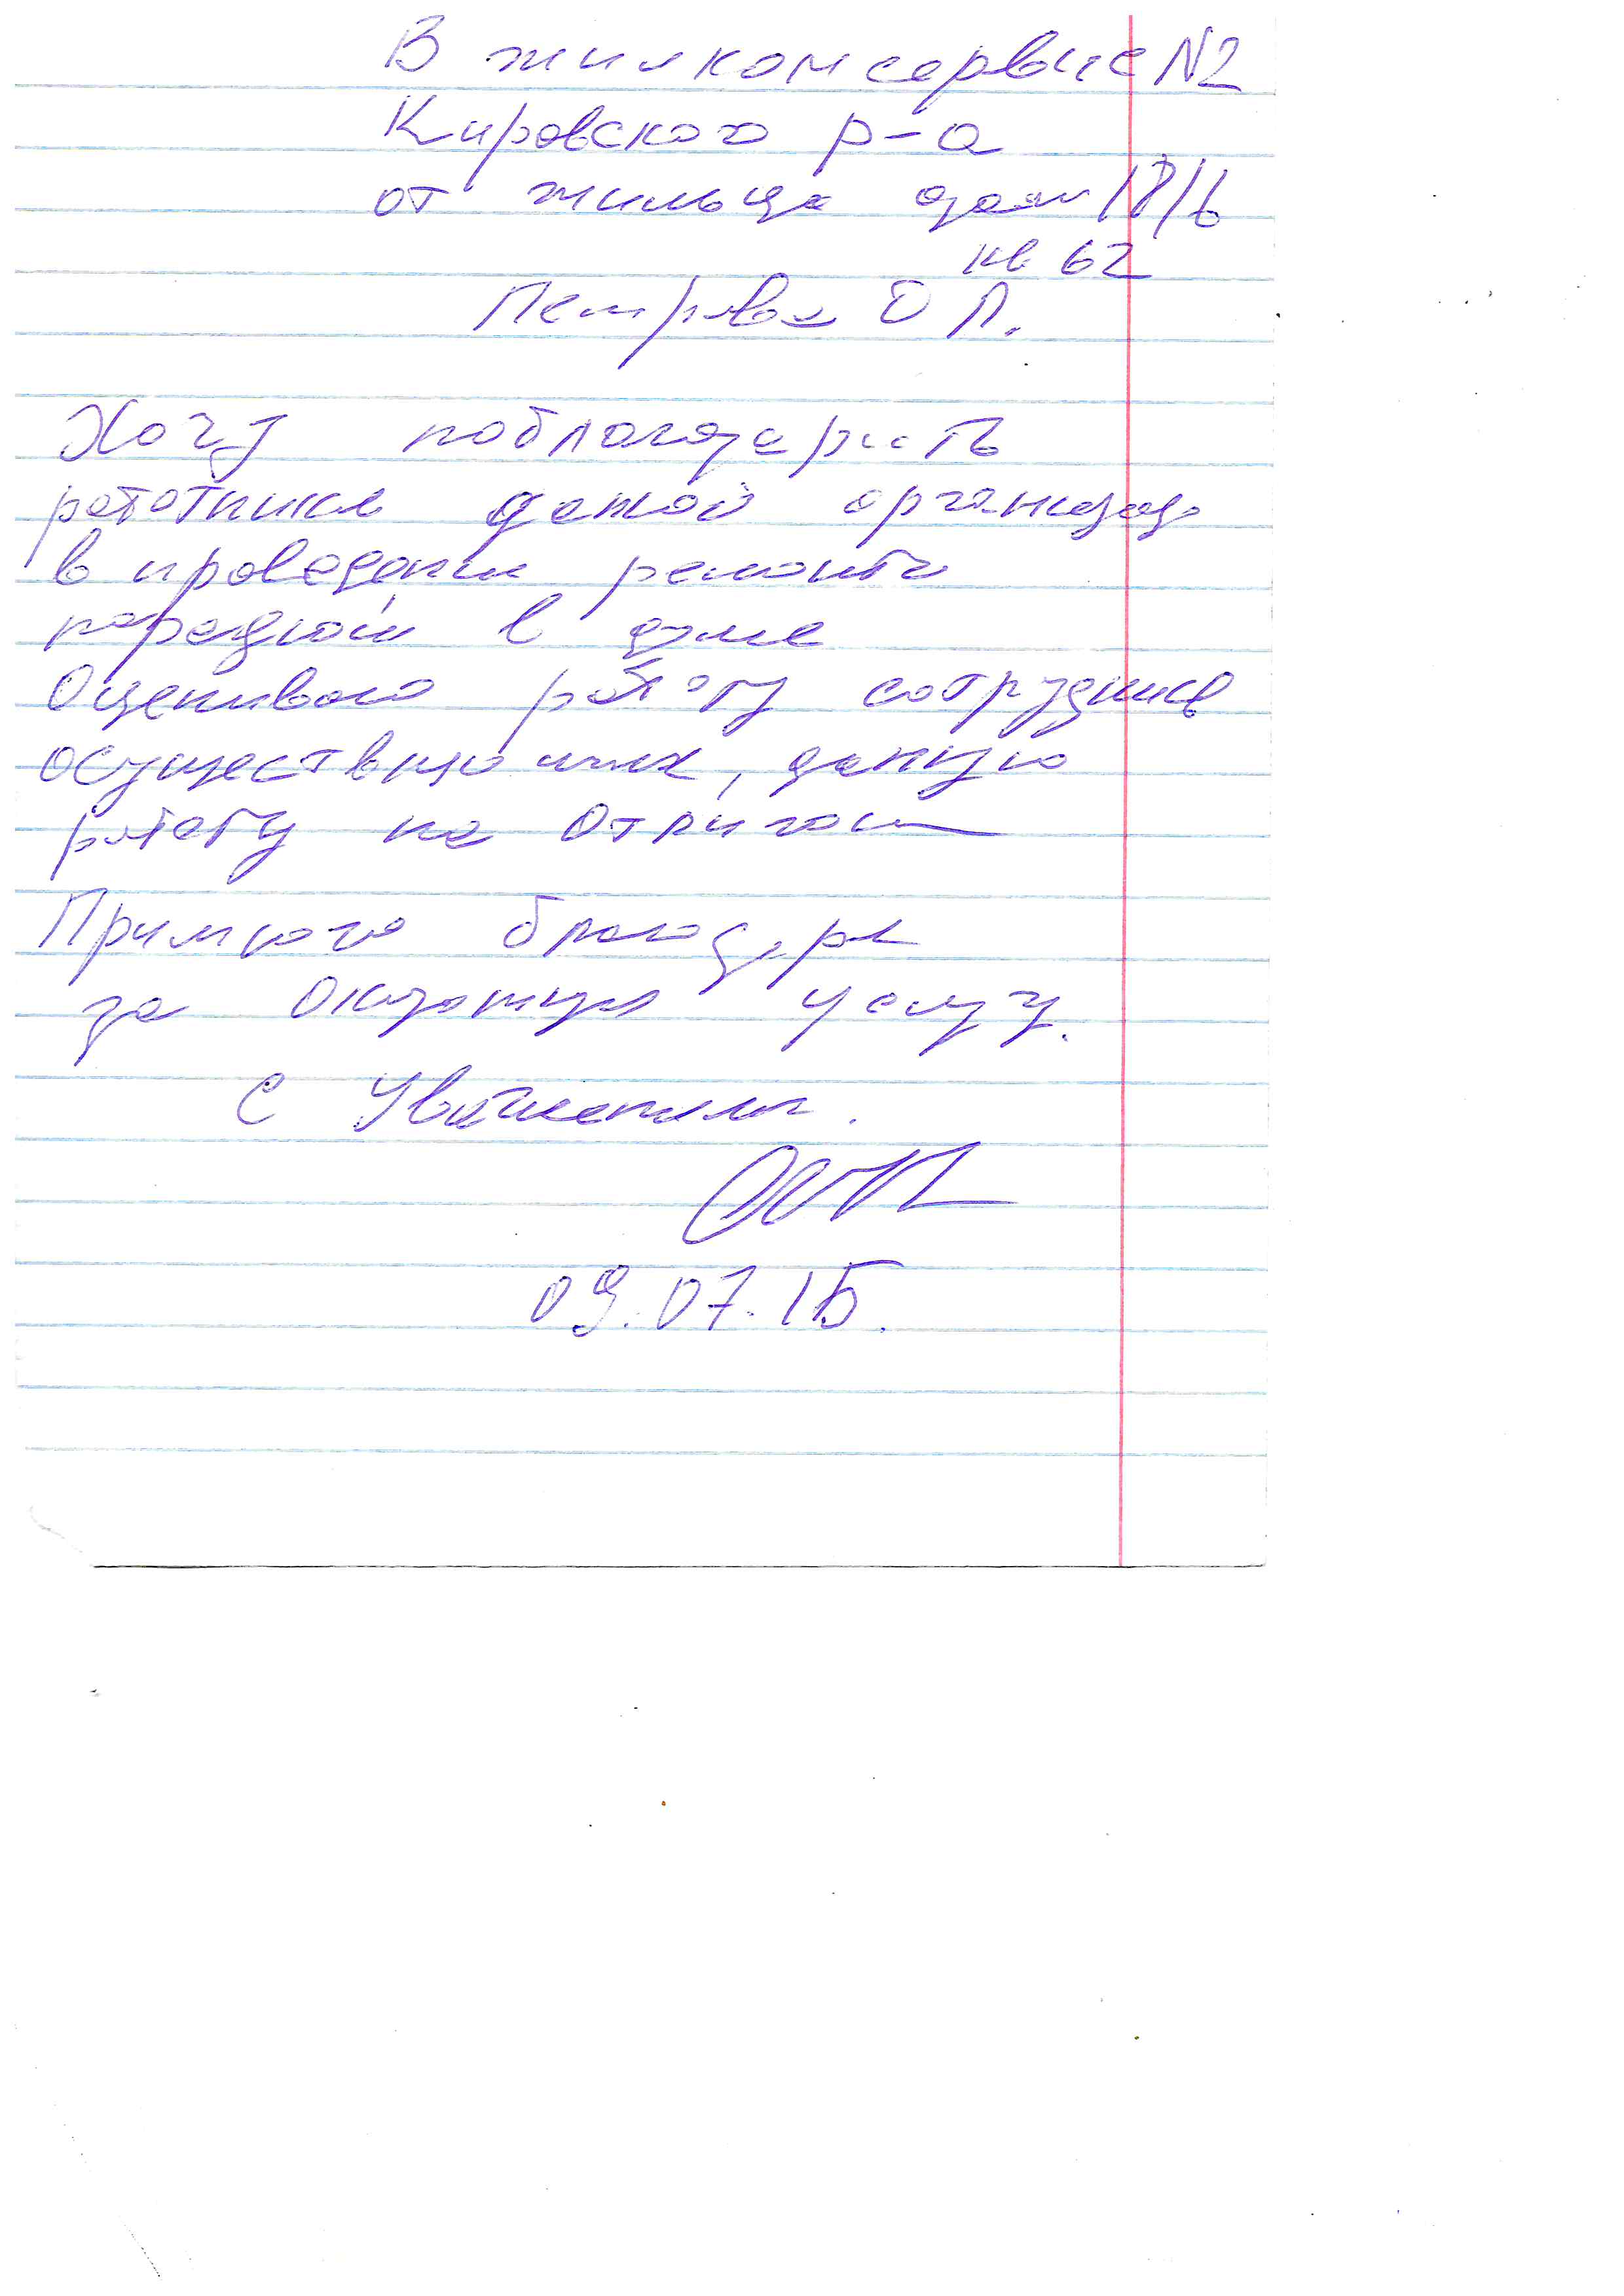 В жилкомсервис N2
Кировского р-а
от жильца дом 18/6
кв 62
Петрова О Л.
Хочу поблагодарить
работников данной организации
в проведении ремонта
парадной в доме
Оцениваю работу сотрудников
осуществляющих, данную
работу на Отлично
Примного благодарна
за Оказанную услугу.
С Уважением.
09.07.15.